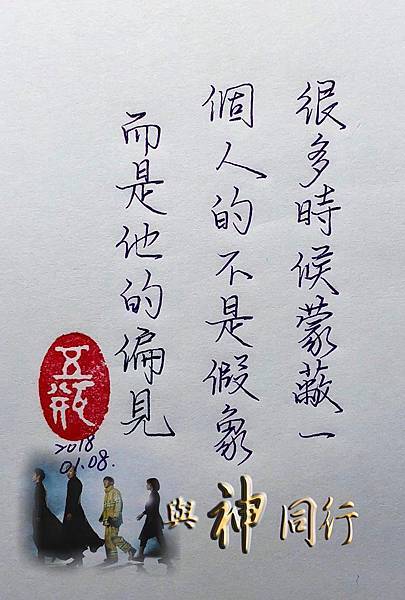 很多時候蒙蔽一
個人的不是假象
而是他的偏見
2018
01.08.
與神同行